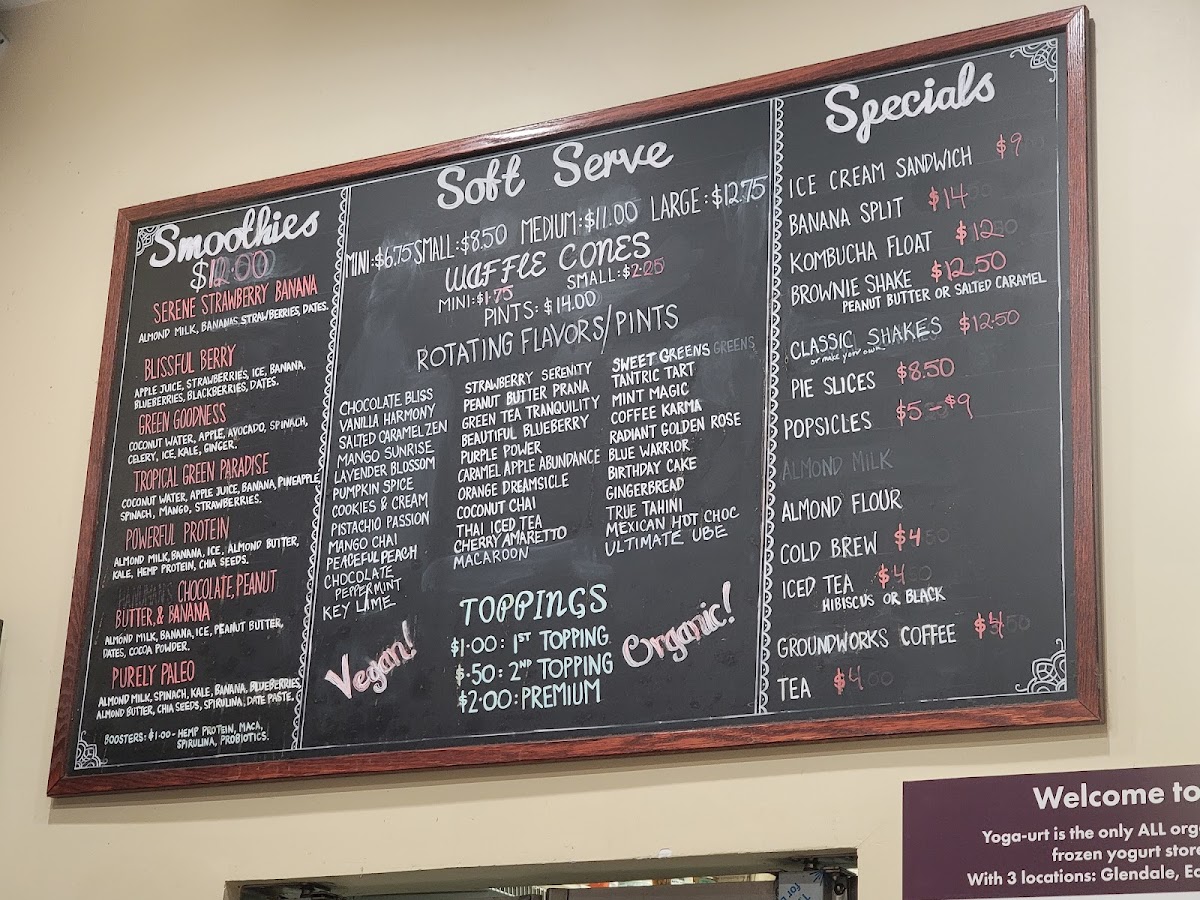 Smoothies
$12.00
SERENE STRAWBERRY BANANA
ALMOND MILK, BANANAS, STRAWBERRIES, DATES.
BLISSFUL BERRY
APPLE JUICE, STRAWBERRIES, ICE, BANANA,
BLUEBERRIES, BLACKBERRIES, DATES.
GREEN GOODNESS
COCONUT WATER, APPLE, AVOCADO, SPINACH,
CELERY, ICE, KALE, GINGER.
TROPICAL GREEN PARADISE
COCONUT WATER, APPLE JUICE, BANANA, PINEAPPLE
SPINACH, MANGO, STRAWBERRIES.
POWERFUL PROTEIN
ALMOND MILK, BANANA, ICE, ALMOND BUTTER,
KALE, HEMP PROTEIN, CHIA SEEDS.
CHOCOLATE, PEANUT
BUTTER, & BANANA
ALMOND MILK, BANANA, ICE, PEANUT BUTTER,
DATES, COCOA POWDER.
PURELY PALEO
ALMOND MILK, SPINACH, KALE, BANANA, BLUEBERRIES,
ALMOND BUTTER, CHIA SEEDS, SPIRULINA, DATE PASTE.
BOOSTERS: $1.00 - HEMP PROTEIN, MACA,
SPIRULINA, PROBIOTICS.
Soft Serve
MINI: $6.75 SMALL: $8.50 MEDIUM: $11.00 LARGE: $12.75
WAFFLE CONES
MINI: $1.75 SMALL: $2.25
PINTS: $14.00
ROTATING FLAVORS/PINTS
CHOCOLATE BLISS
VANILLA HARMONY
SALTED CARAMEL ZEN
MANGO SUNRISE
LAVENDER BLOSSOM
PUMPKIN SPICE
COOKIES & CREAM
PISTACHIO PASSION
MANGO CHAI
PEACEFUL PEACH
CHOCOLATE
PEPPERMINT
KEY LIME
STRAWBERRY SERENITY
PEANUT BUTTER PRANA
GREEN TEA TRANQUILITY
BEAUTIFUL BLUEBERRY
PURPLE POWER
CARAMEL APPLE ABUNDANCE
ORANGE DREAMSICLE
COCONUT CHAI
THAI ICED TEA
CHERRY AMARETTO
MACAROON
SWEET GREENS GREENS
TANTRIC TART
MINT MAGIC
COFFEE KARMA
RADIANT GOLDEN ROSE
BLUE WARRIOR
BIRTHDAY CAKE
GINGERBREAD
TRUE TAHINI
MEXICAN HOT CHOC
ULTIMATE UBE
Vegan!
TOPPINGS
$1.00: 1ST TOPPING
$.50: 2ND TOPPING
$2.00: PREMIUM
Organic!
Specials
ICE CREAM SANDWICH $9
BANANA SPLIT $14
KOMBUCHA FLOAT $12
BROWNIE SHAKE $12.50
PEANUT BUTTER OR SALTED CARAMEL
CLASSIC SHAKES $12.50
or make your own
PIE SLICES $8.50
POPSICLES $5-$9
ALMOND MILK
ALMOND FLOUR
COLD BREW $4
ICED TEA $4
HIBISCUS OR BLACK
GROUNDWORKS COFFEE $4
TEA $4
Welcome to
Yoga-urt is the only ALL
frozen yogurt store
With 3 locations: Glendale,